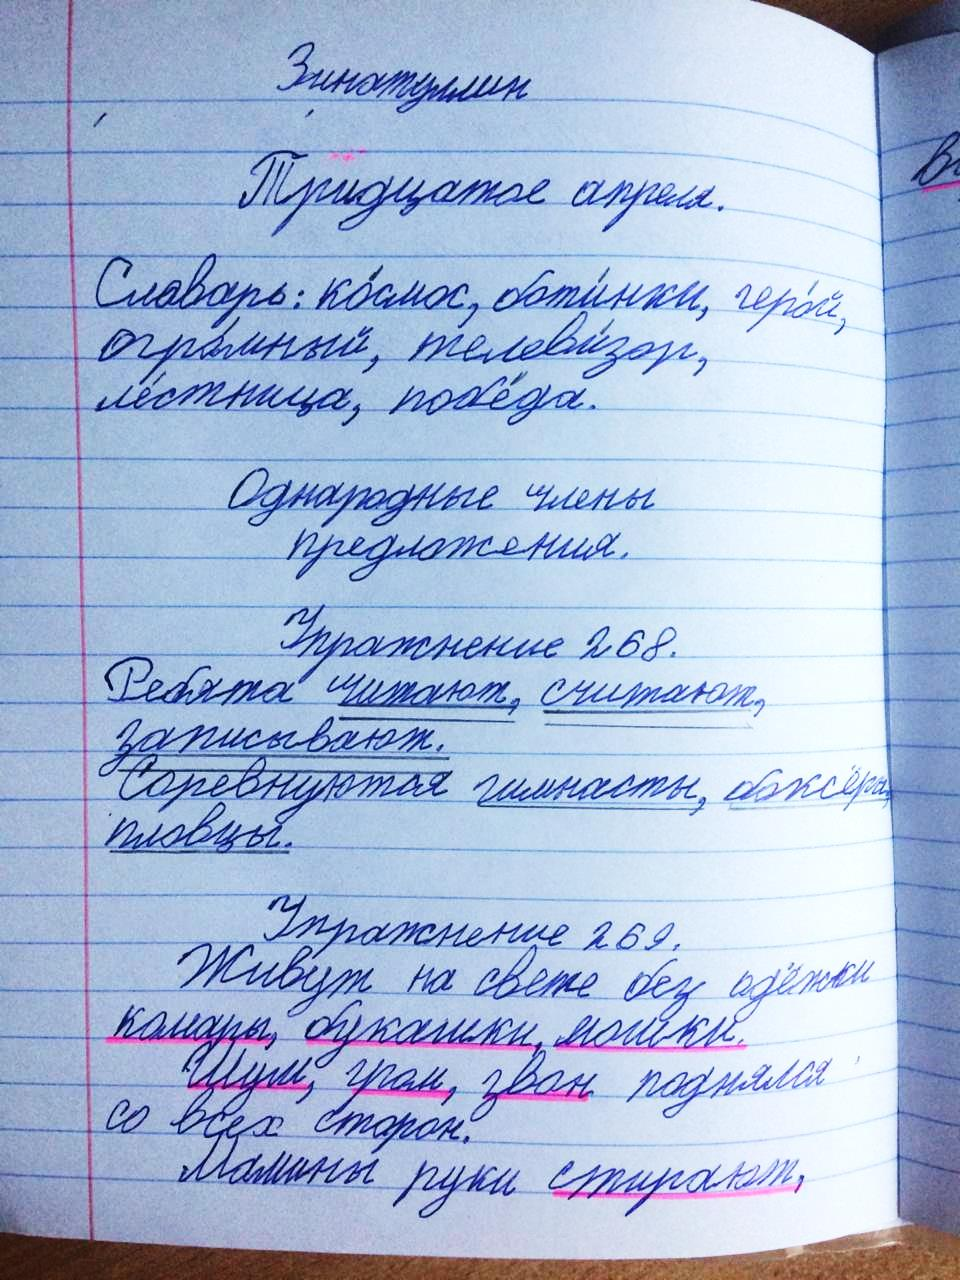 Зинатуллин
Тридцатое апреля.
Словарь: ко́смос, боти́нки, геро́й,
огро́мный, телеви́зор,
ле́стница, побе́да.
Однародные члены
предложения.
Упражнение 268.
Ребята читают, считают,
записывают.
Соревнуются гимнасты, боксёры,
пловцы.
Упражнение 269.
Живут на свете без одёжки
комары, букашки, мошки.
Шум, гром, звон поднялся
со всех сторон.
Мамины руки стирают,